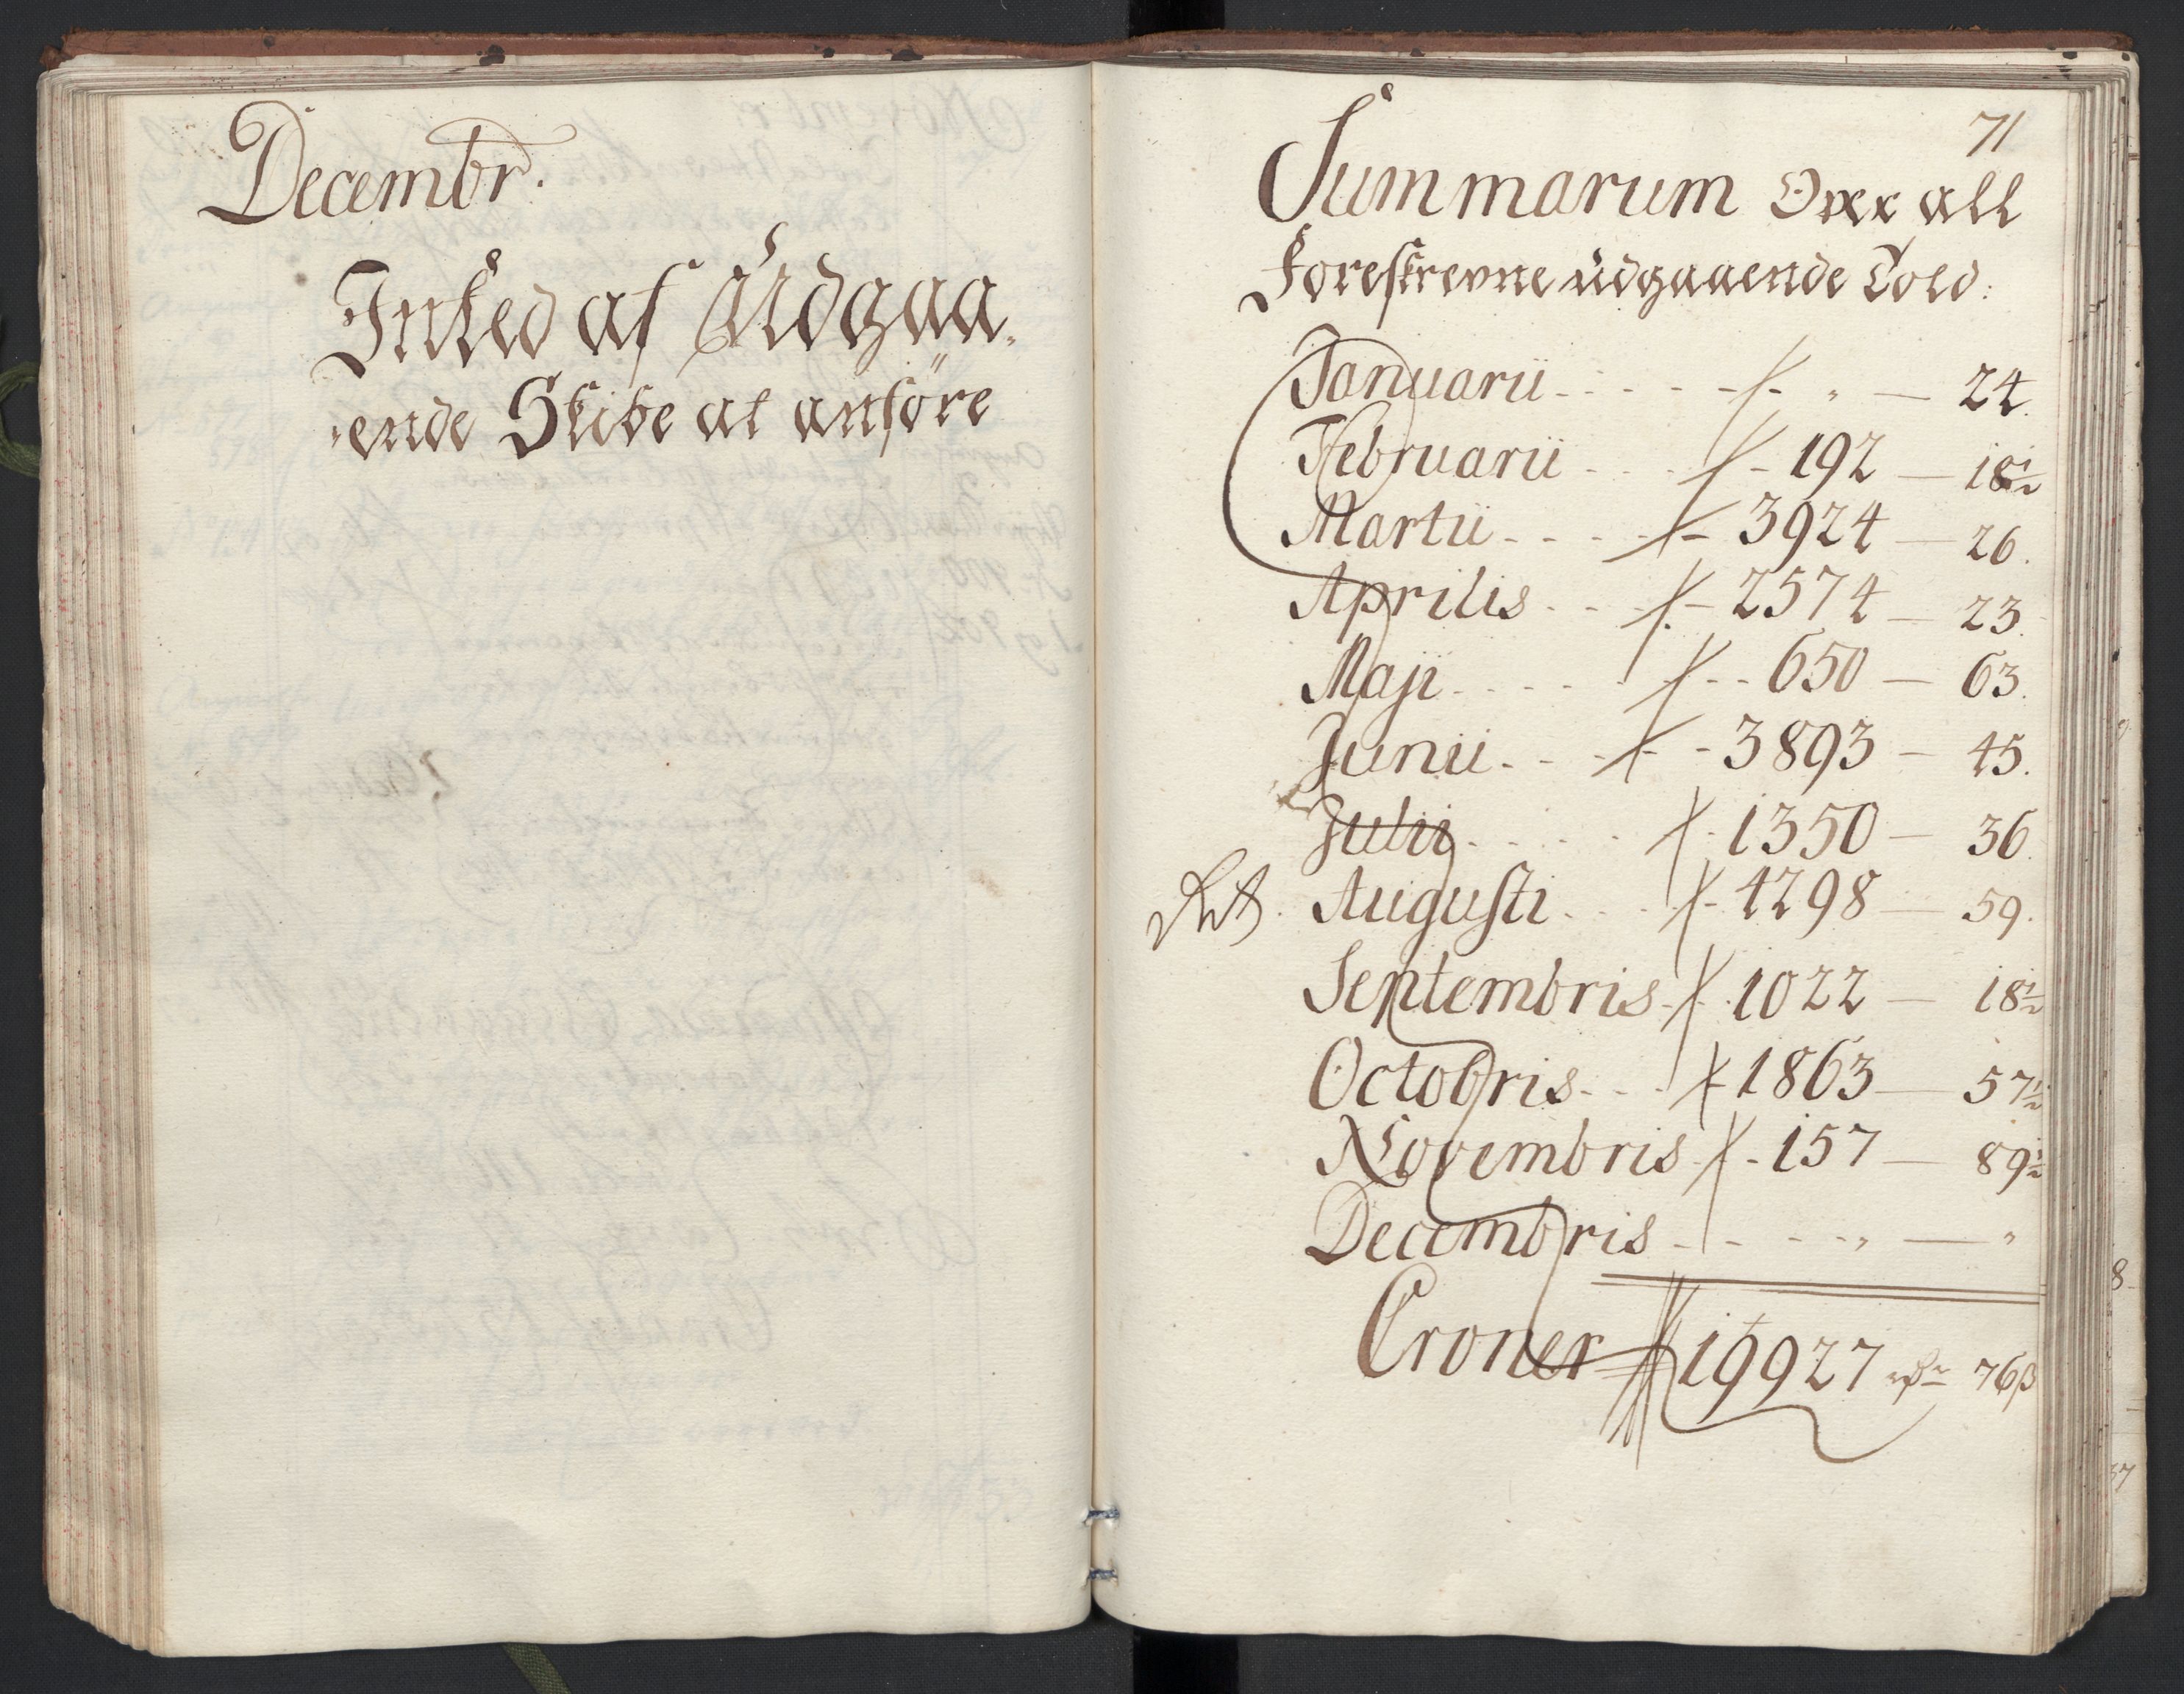 Decembr.
Intted af Udgaa-
-ende Skibe at anföre
71
Summarum Over all
Foreskrevne udgaaende Told:
Januarii - - - - - " — 24.
Februarii - - - 192 — 18½
Martii - - - - 3924 — 26.
Aprilis - - - 2574 — 23.
Maji - - - - - 650 — 63.
Junii - - - - 3893 — 45.
Julii - - - - 1350 — 36.
Augusti - - - 4298 — 59.
Septembris - 1022 — 18½
Octobris - - - 1863 — 57½
Novembris - 157 — 89½
Decembris - - - - " — "
Croner 19927 76β